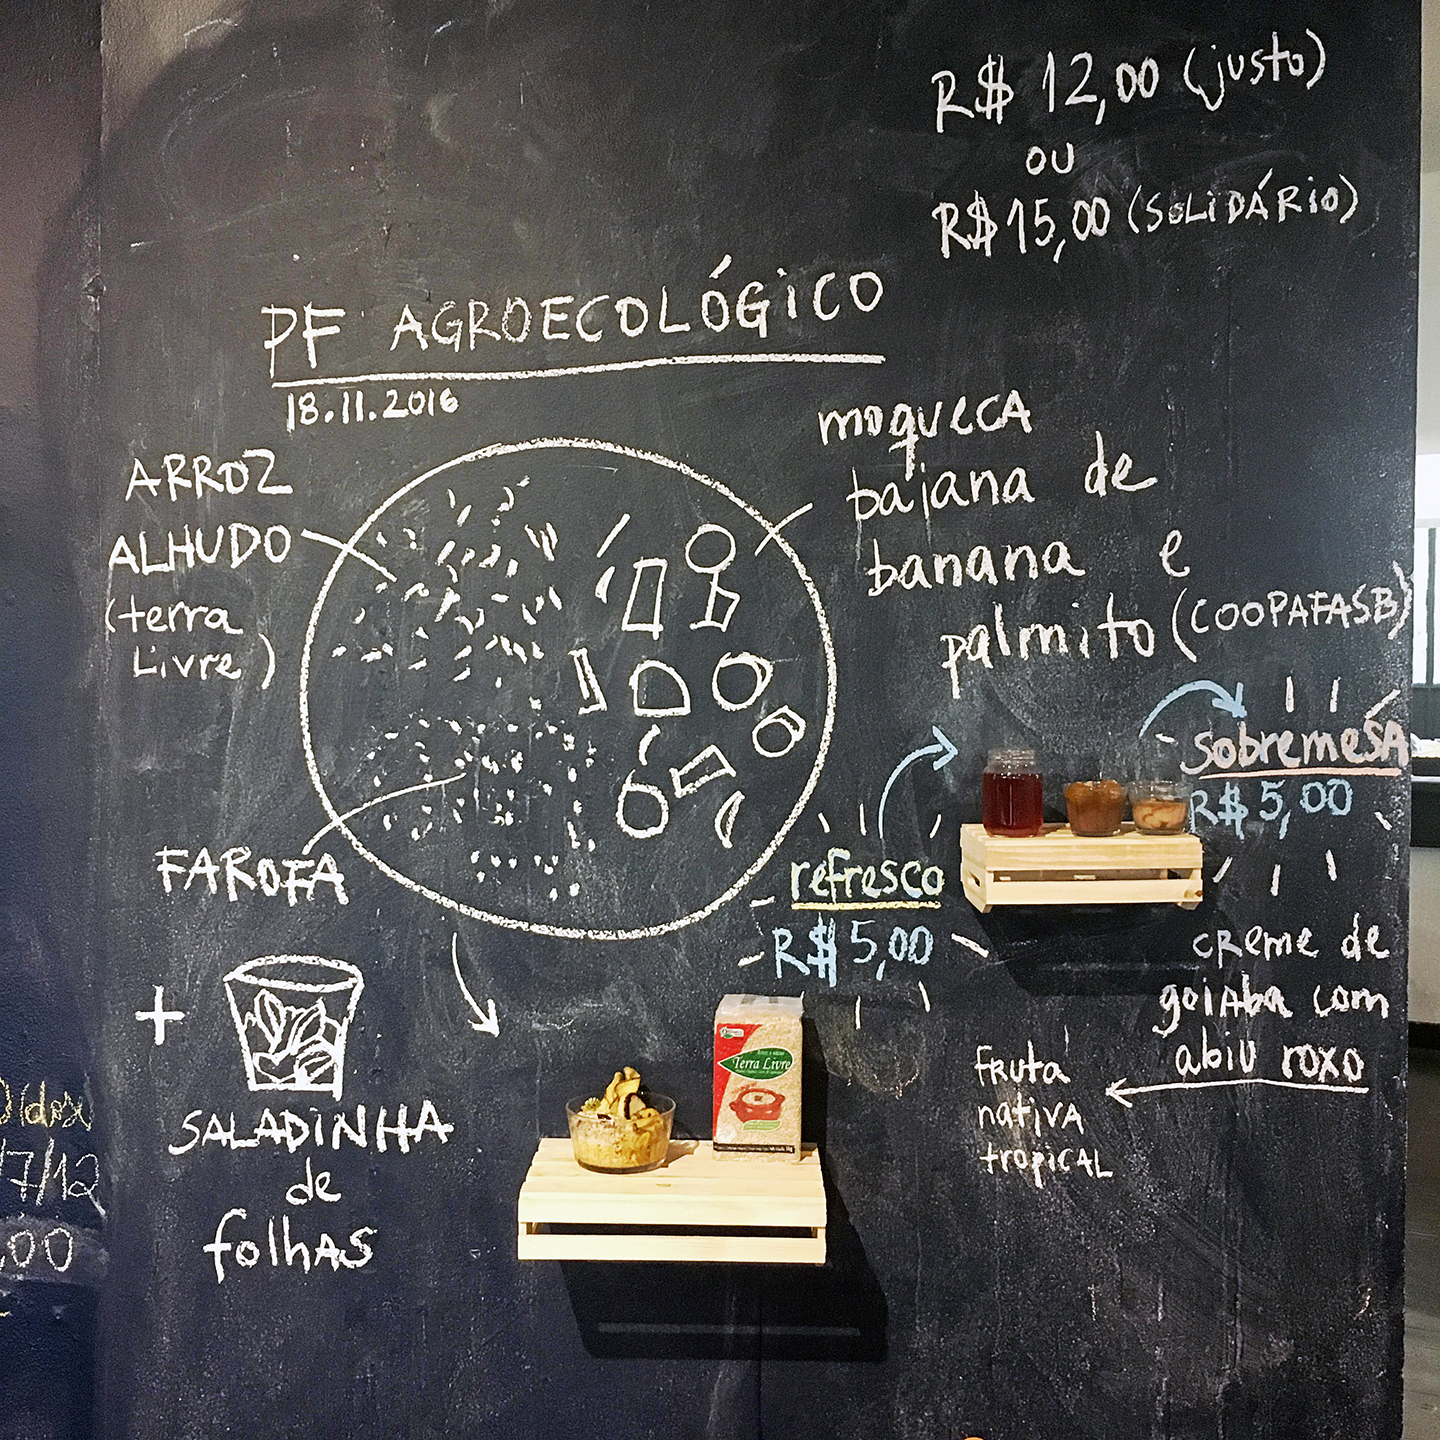 R$ 12,00 (justo)
ou
R$ 15,00 (SOLIDÁRIO)
PF AGROECOLÓGICO
18.11.2016
ARROZ
ALHUDO
(terra
Livre)
moqueca
bajana de
banana e
palmito (COOPAFASB)
FAROFA
+
SALADINHA
de
folhAS
refresco
R$ 5,00
sobremesA
R$ 5,00
creme de
goiaba com
abiu roxo
fruta
nativa
tropical
Terra Livre
7/12
,00